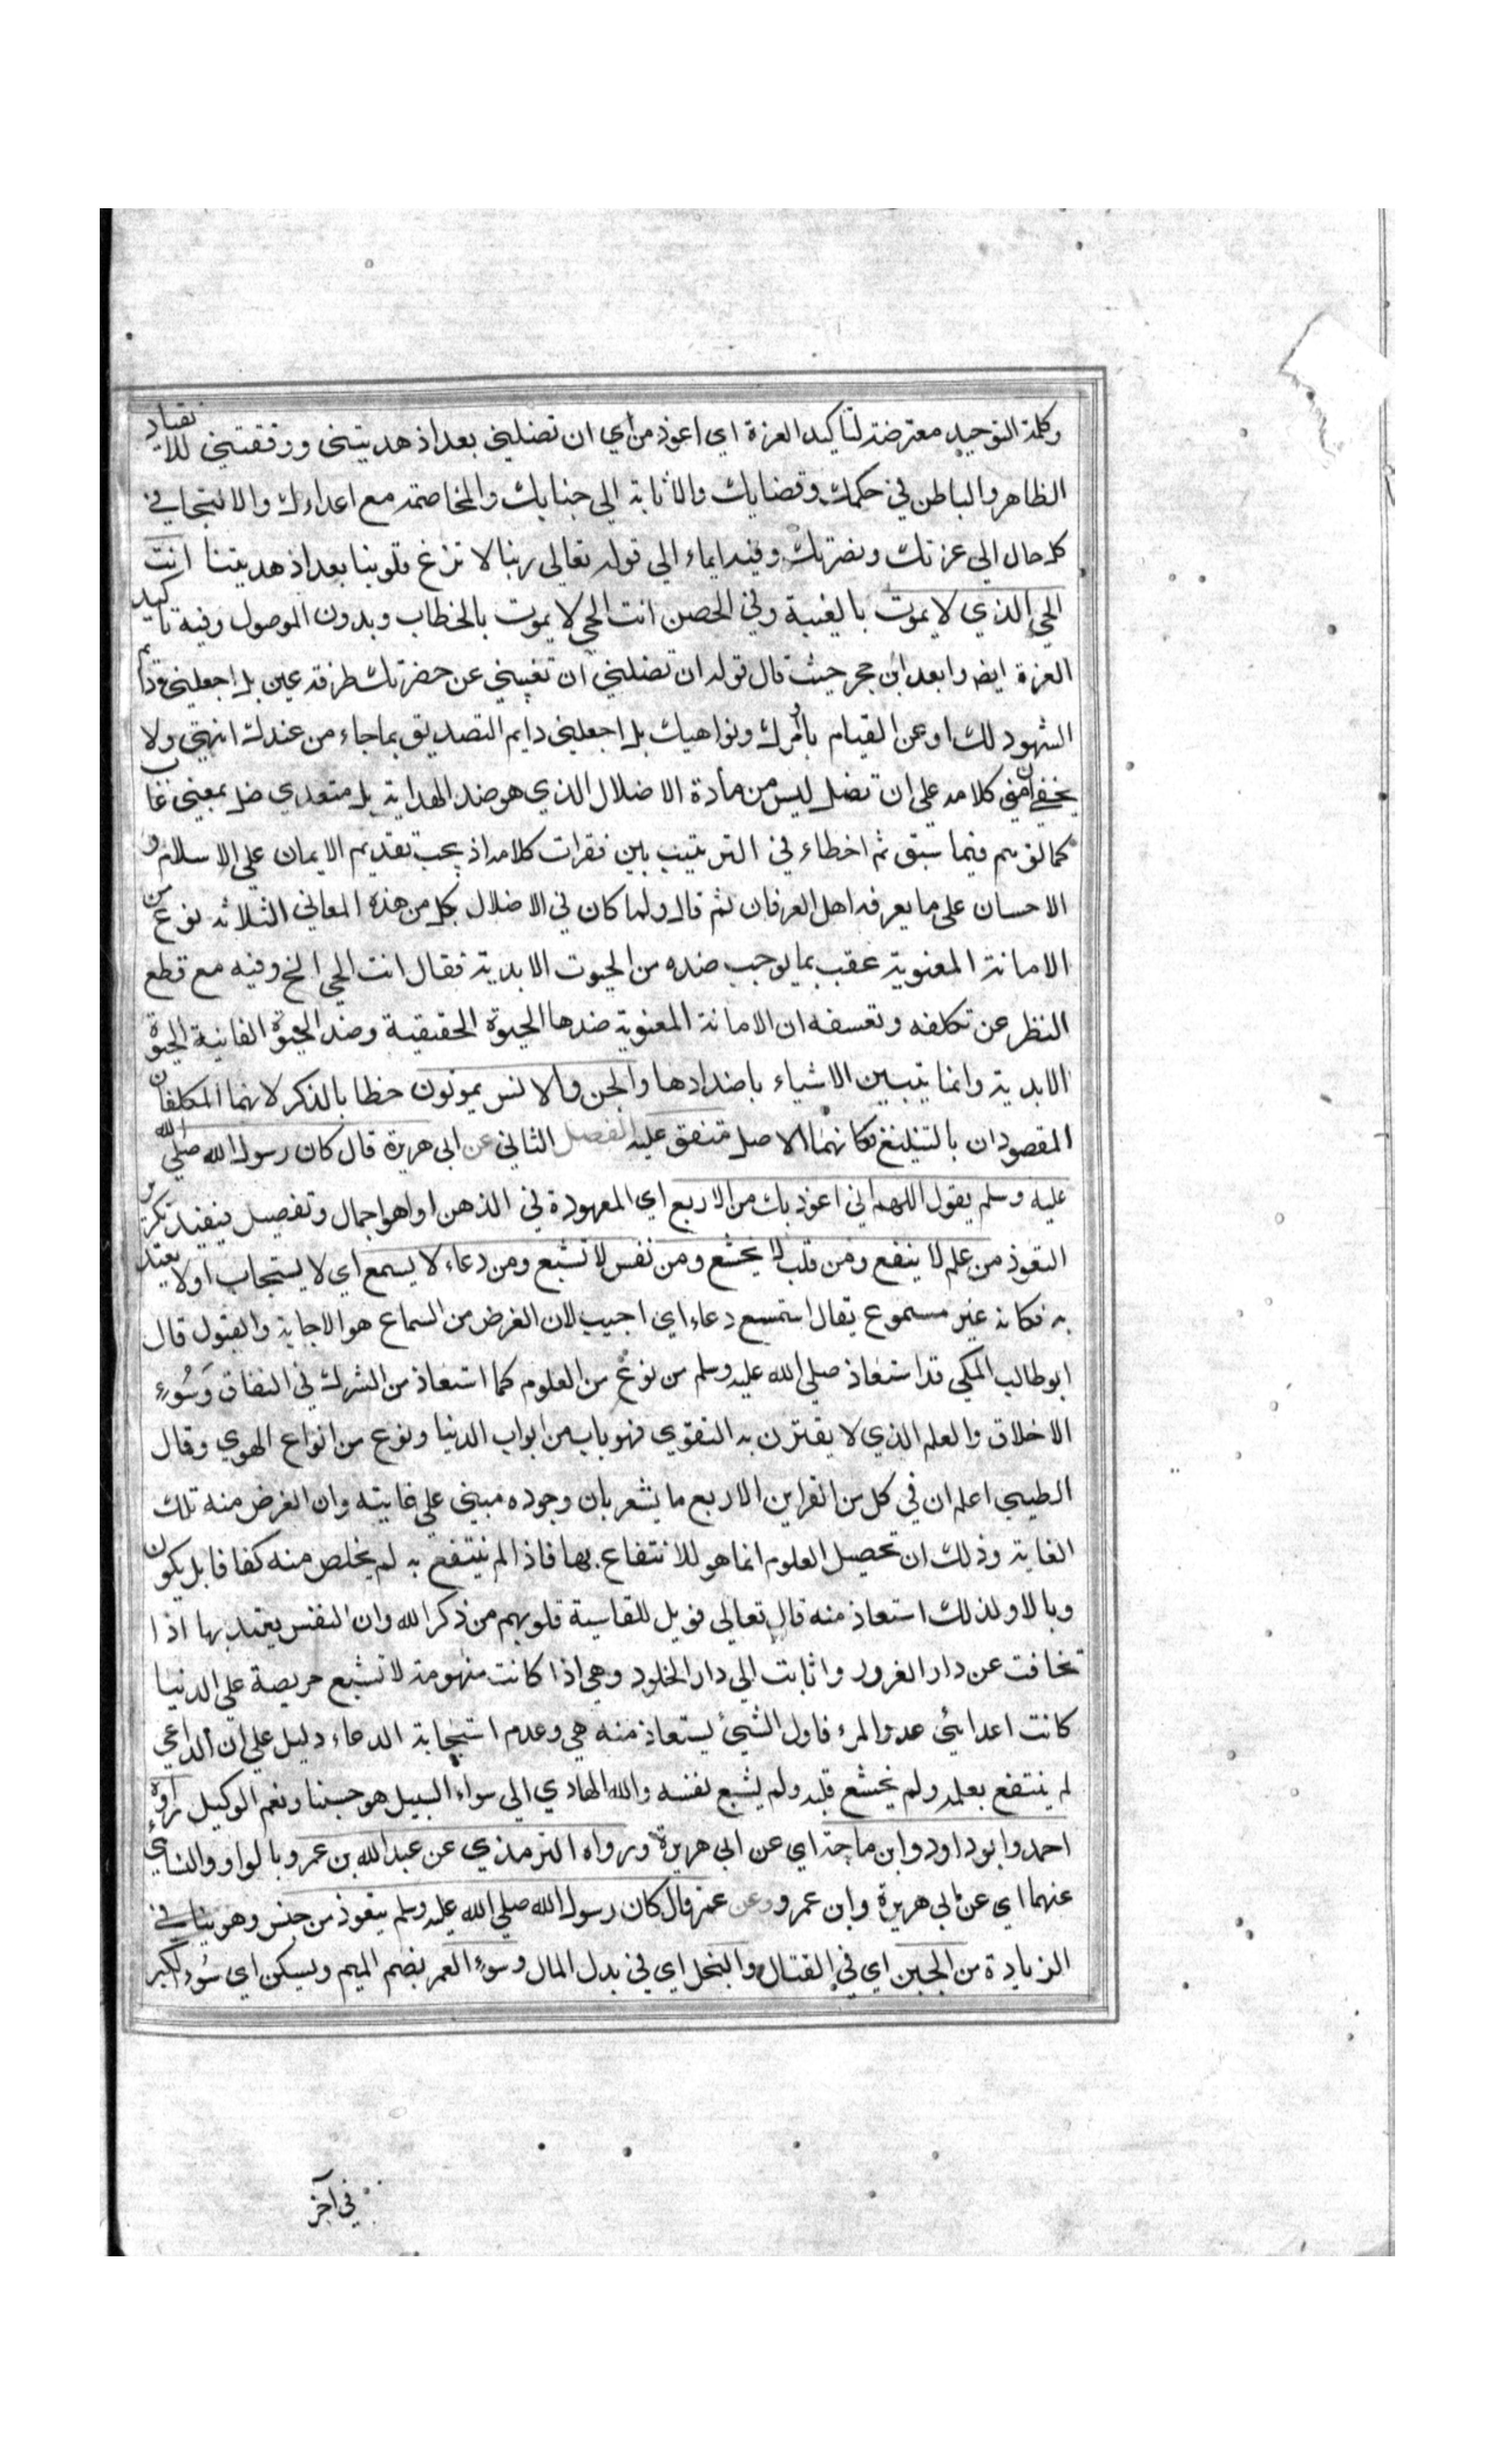 وكلمة التوحيد معترضة لتاكيد العزة اي اعوذ من اي ان تضلني بعد اذ هديتني ووفقتني للانقياد
الظاهر والباطن في حكمك وقضايك والاثابة الي جنابك والمخاصمة مع اعداءك والالتجا في
كل حال الي عزتك ونصرتك وفيه ايماء الي قوله تعالى ربنا لا تزغ قلوبنا بعد اذ هديتنا انت
الحي الذي لا يموت بالغيبة وفي الحصن انت الحي لا يموت بالخطاب وبدون الموصول وفيه تاكيد
العزة ايضا وابعد ابن حجر حيث قال قوله ان تضلني ان تغيبني عن حضرتك طرفة عين بل اجعلني دايم
الشهود لك او عن القيام باوامرك ونواهيك بل اجعلني دايم التصديق بما جاء من عندك انتهي ولا
يخفي ان في كلامه علي ان تضل ليس من مادة الاضلال الذي هو ضد الهداية بل متعدي ضل بمعني غاب
كما توهم فيما سبق ثم اخطاء في الترتيب بين فقرات كلامه اذ يجب تقديم الايمان علي الاسلام و
الاحسان علي ما يعرفه اهل العرفان ثم قال ولما كان في الاضلال بكل من هذه المعاني الثلاثه نوع من
الاماتة المعنوية عقب بما يوجب ضده من الحيوت الابدية فقال انت الحي الخ وفيه مع قطع
النظر عن تكلفه وتعسفه ان الاماتة المعنوية ضدها الحيوة الحقيقية وضد الحيوة الفانية الحيوة
الابدية وانما يتبين الاشياء باضدادها والجن والانس يموتون خطا بالذكر لانهما المكلفان
المقصودان بالتبليغ فكانهما الاصل متفق عليه الفصل الثاني عن ابي هريرة قال كان رسول الله صلي الله
عليه وسلم يقول اللهم اني اعوذ بك من الاربع اي المعهودة في الذهن او اهو اجمال وتفصيل فيفيد تكرير
التعوذ من علم لا ينفع ومن قلب لا يخشع ومن نفس لا تشبع ومن دعاء لا يسمع اي لا يستجاب او لا يعتد
به فكانه غير مسموع يقال استمسع دعاء اي اجيب لان الغرض من السماع هو الاجابة والقبول قال
ابو طالب المكي قد استعاذ صلي الله عليه وسلم من نوع من العلوم كما استعاذ من الشرك في النفاق وسُوء
الاخلاق والعلم الذي لا يقترن به التقوي فهو باب من ابواب الدنيا ونوع من انواع الهوي وقال
الطيبي اعلم ان في كل من القراين الاربع ما يشعر بان وجوده مبني علي غايته وان الغرض منه تلك
الغاية وذلك ان تحصيل العلوم انما هو للانتفاع بها فاذا لم ينتفع به لم يخلص منه كفافا بل يكون
وبالا ولذلك استعاذ منه قال تعالي فويل للقاسية قلوبهم من ذكر الله وان النفس يعتد بها اذا
تجافت عن دار الغرور واثابت الي دار الخلود وهي اذا كانت منهومة لا تشبع حريصة علي الدنيا
كانت اعدايئ عدو المرء فاول الشيئ يستعاذ منه هي وعدم استجابة الدعاء دليل علي ان الداعي
لم ينتفع بعلمه ولم يخشع قلبه ولم يشبع نفسه والله الهادي الي سواء السبيل هو حسبنا ونعم الوكيل رواه
احمد وابو داود وابن ماجة اي عن ابي هريرة ورواه الترمذي عن عبدالله بن عمرو بالواو والنساي
عنهما اي عن ابي هريرة وابن عمرو وعن عمر قال كان رسول الله صلي الله عليه وسلم يتعوذ من خمس وهو ينافي
الزيادة من الجبن اي في القتال والبخل اي في بدل المال وسوء العمر بضم الميم ويسكن اي سُوء الكبر
في آخر